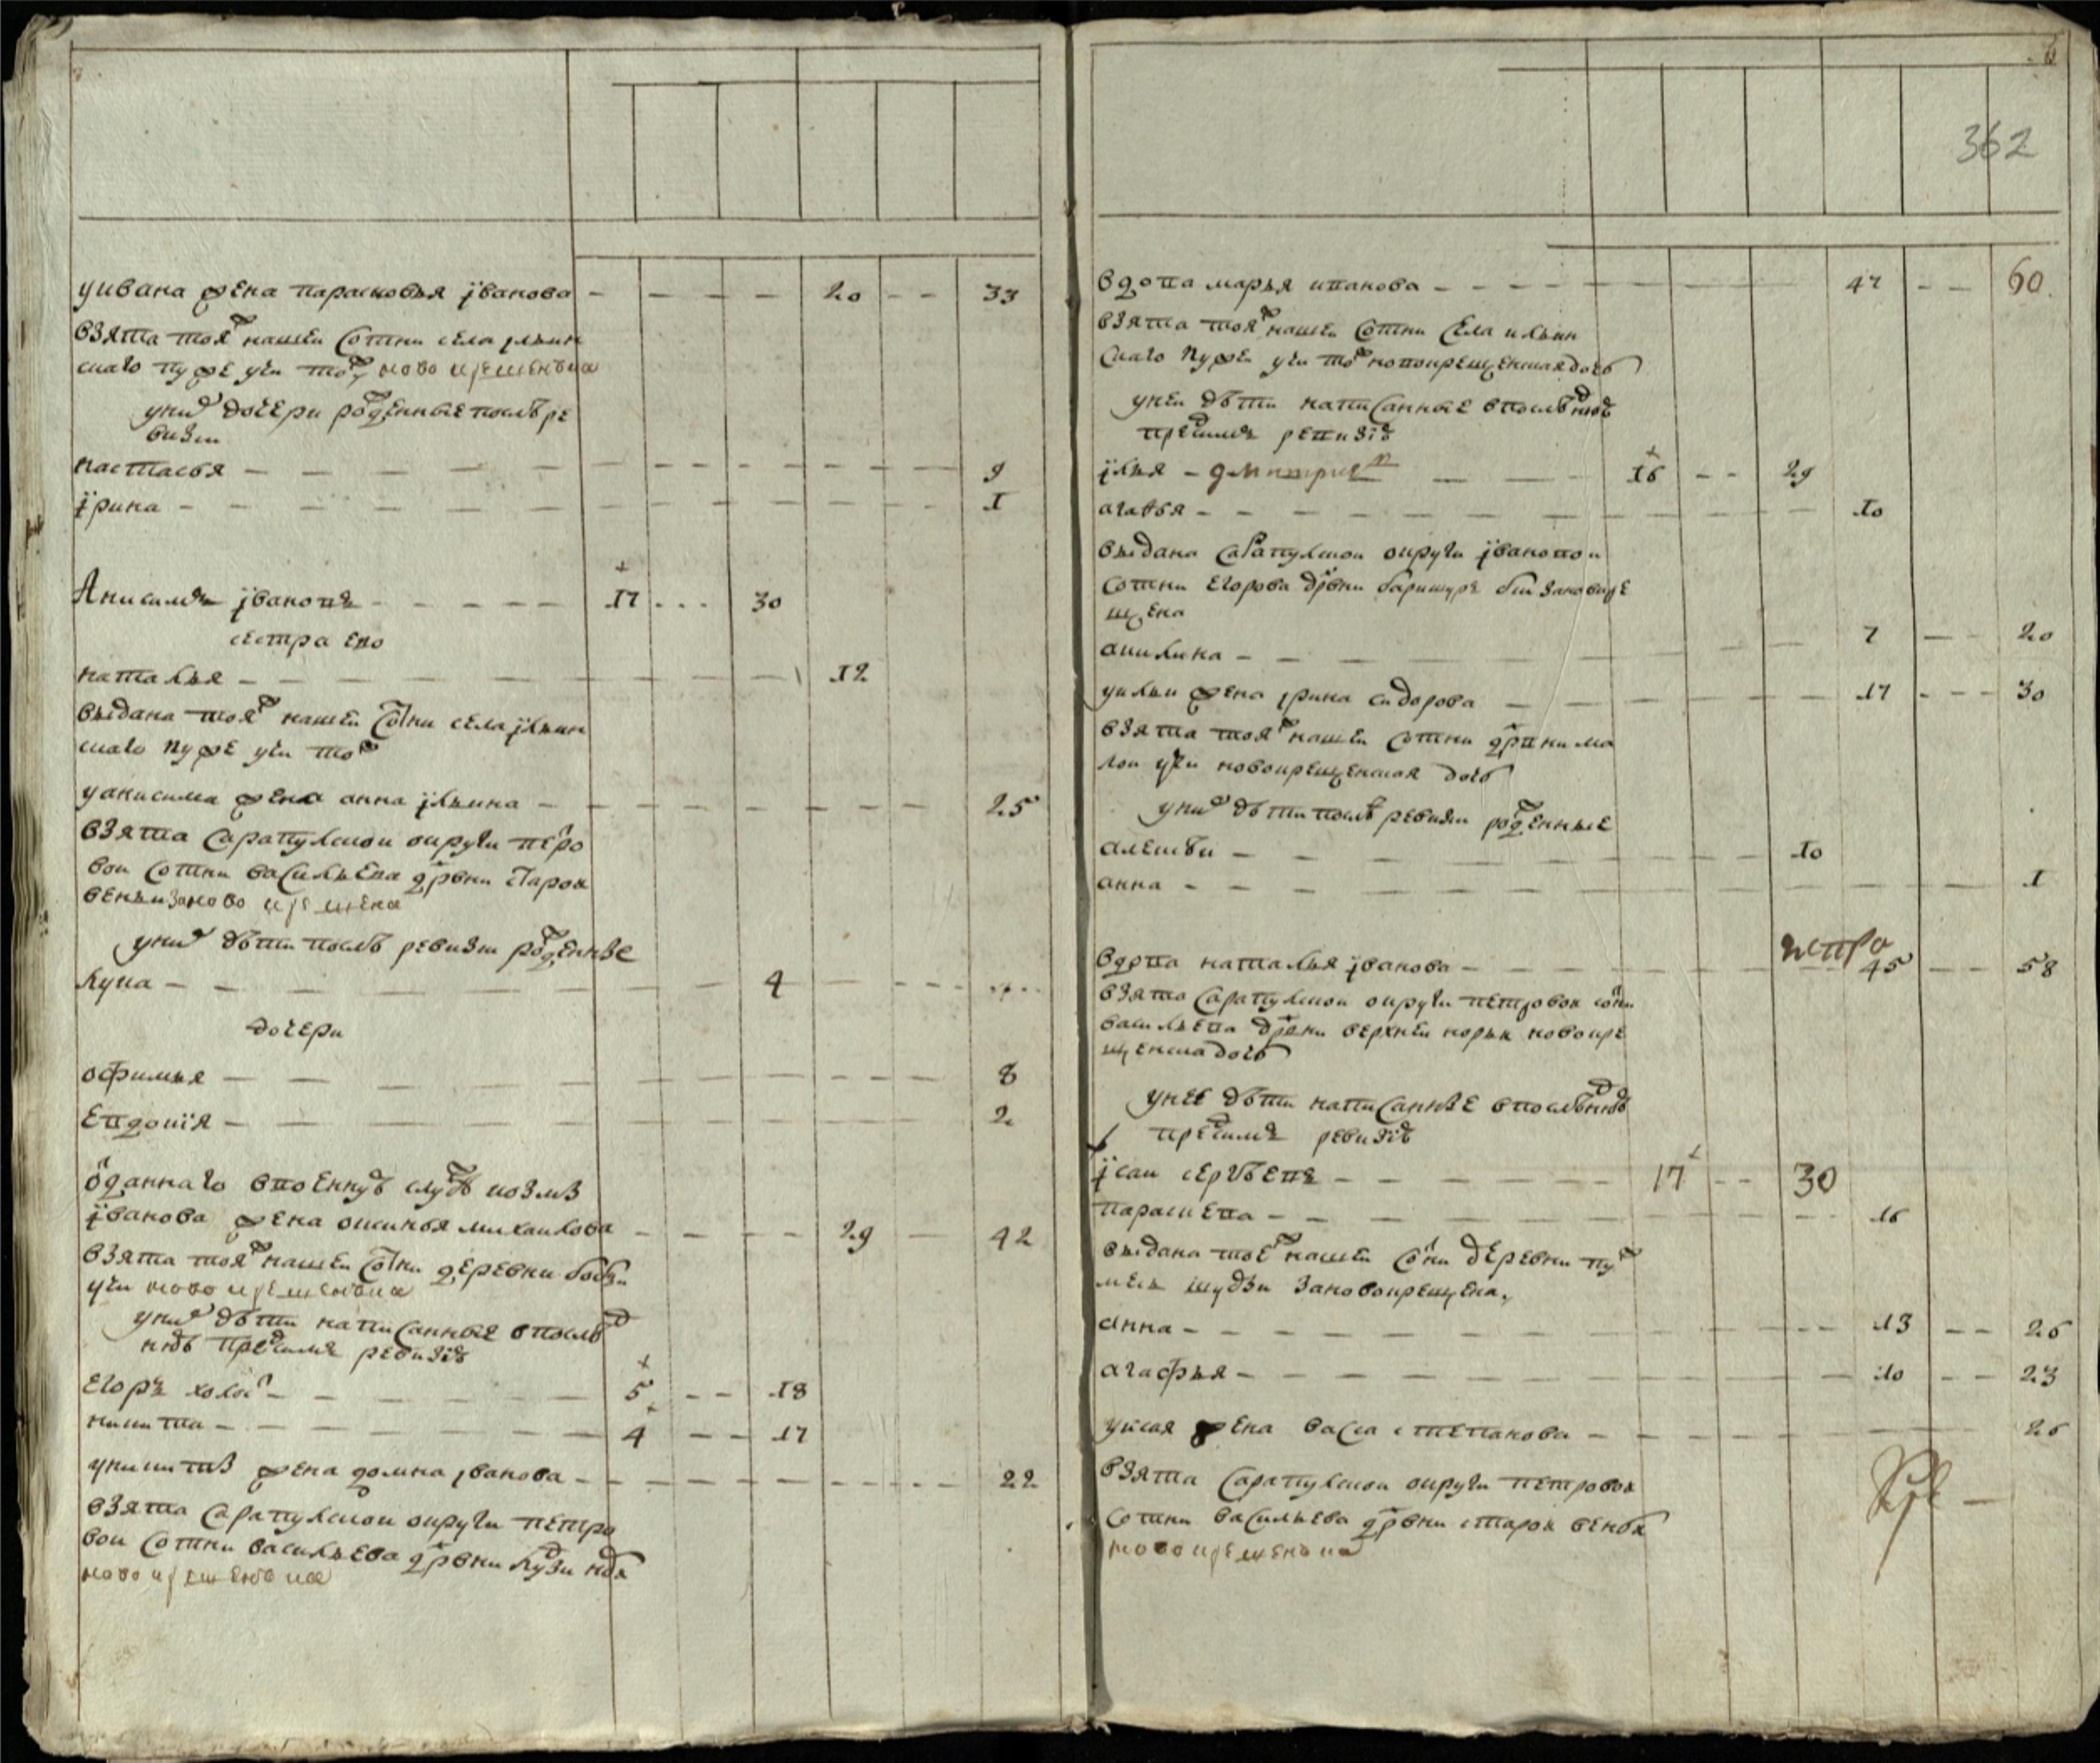 362
уивана жена парасковья иванова - - - - 20 - - 33
взята тояж нашеи сотни села ильин
скаго пужеучи тож новокрещенъка
уних дочери рожденные после ре
визи
настасья - - - - 9
ирина - - - - 1
Анисимъ ивановъ - - - - 17 - - - 30
сестра ево
наталья - - - - 12
выдана тояж нашеи сотни села ильин
скаго пужеучи тож
уанисима жена анна ильина - - - - 25
взята сарапулскои округи петро
вои сотни васильева дрвни старои
веньи заново крещена
уних дети после ревизи рожденные
лука - - - - 4 - - - -
дочери
офимья - - - - 8
евдокия - - - - 2
отданнаго ввоенную службу козмы
иванова жена оксинья михаилова - - - - 29 - 42
взята тояж нашеи сотни деревни
учи новокрещенъка
уних дети написанные впослед
нюю предсимъ ревизию
егоръ холост - - - - 5 - - 18
никита - - - - 4 - - 17
уникиты жена домна иванова - - - - 22
взята сарапулскои округи петро
вои сотни васильева дрвни
новокрещенъка
вдова марья иванова - - - - 47 - - 60
взята тояж нашеи сотни села ильин
скаго пужеи учи тож новокрещенская дочь
унеи дети написанные впоследнюю
предсимъ ревизию
илья - дмитриев - - 16 - - 29
агафья - - - - 10
выдана сарапулскои округи ивановои
сотни егорова дрвни зановокре
щена
акилина - - - - 7 - - 20
уильи жена ирина сидорова - - - - 17 - - - 30
взята тояж нашеи сотни дрвни ма
лои учи новокрещенская дочь
уних дети после ревизи рожденные
алексеи - - - - 10
анна - - - - 1
вдова наталья иванова - - - - 45 - - 58
взята сарапулскои округи петровои сотни
васильева дрвни верхнеи норьи новокре
щенска дочь
унее дети написанные впоследнюю
предсимъ ревизию
исаи сергеевъ - - - - 17 - - 30
парасковья - - - - 16
выдана тоеж нашеи сотни деревни пуж
меъ шудзи зановокрещена
анна - - - - 13 - - 26
агафья - - - - 10 - - 23
уисая жена васса степанова - - - - 26
взята сарапулскои округи петровои
сотни васильева дрвни старои веньи
новокрещенъка